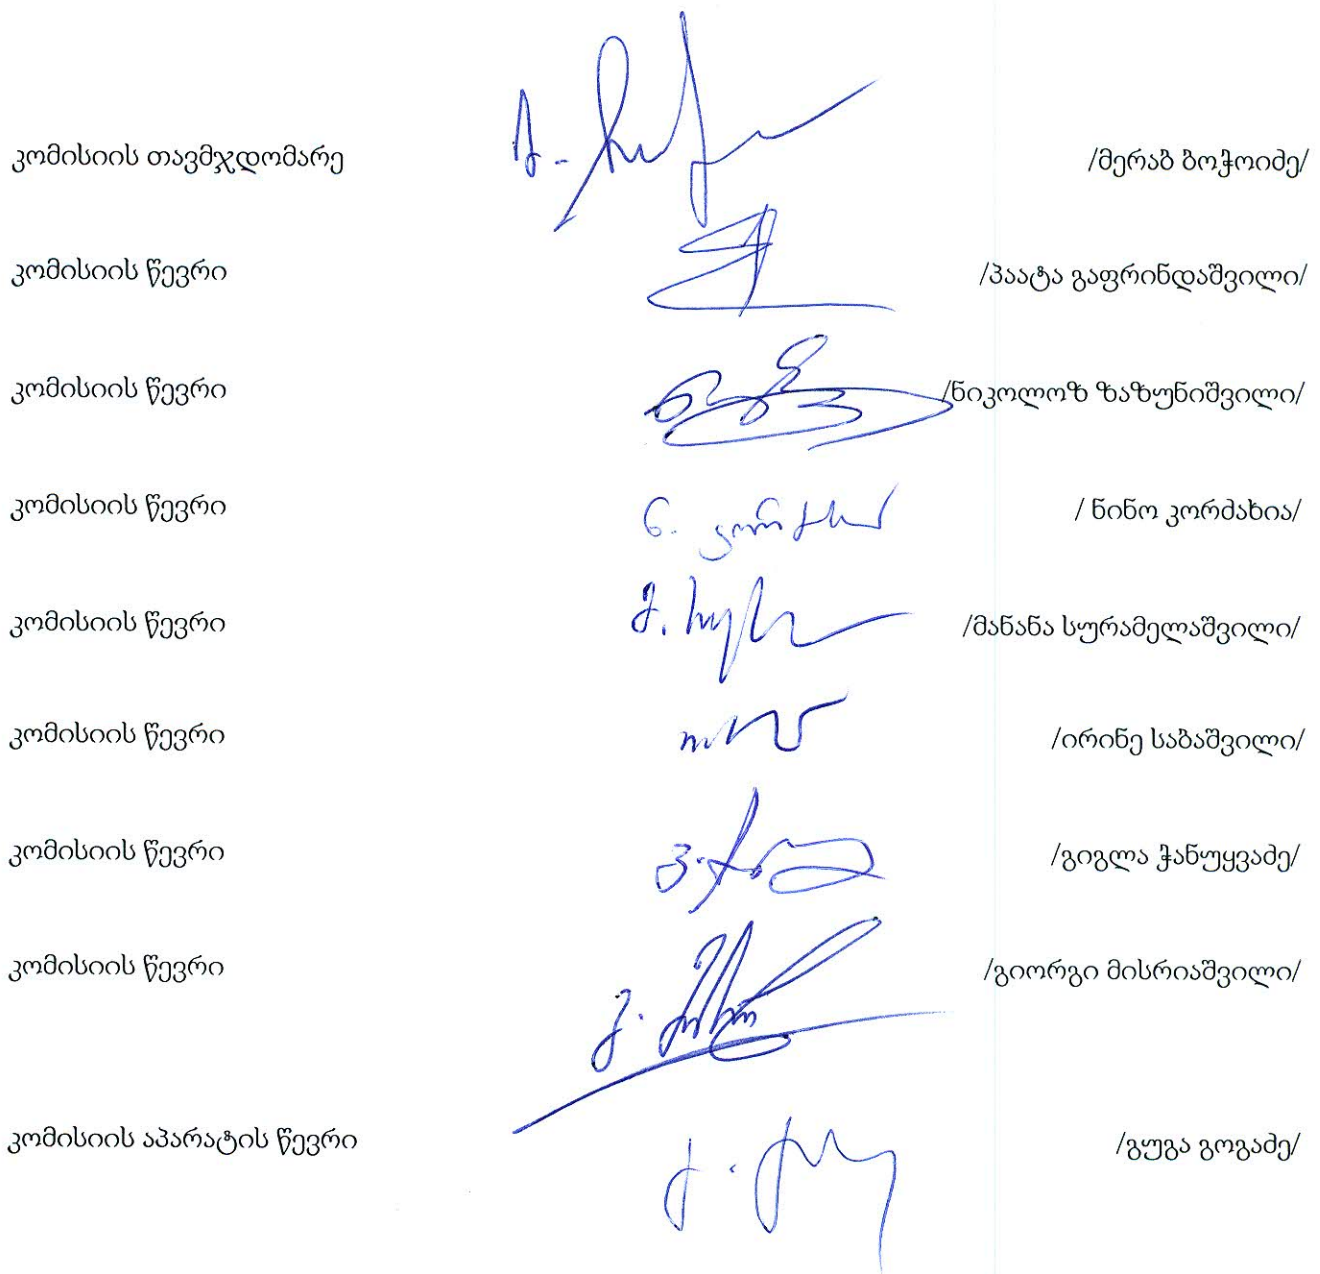 კომისიის თავმჯდომარე /მერაბ ბოჭოიძე/
კომისიის წევრი /პაატა გაფრინდაშვილი/
კომისიის წევრი /ნიკოლოზ ზაზუნიშვილი/
კომისიის წევრი / ნინო კორძახია/
კომისიის წევრი /მანანა სურამელაშვილი/
კომისიის წევრი /ირინე საბაშვილი/
კომისიის წევრი /გიგლა ჭანუყვაძე/
კომისიის წევრი /გიორგი მისრიაშვილი/
კომისიის აპარატის წევრი /გუგა გოგაძე/